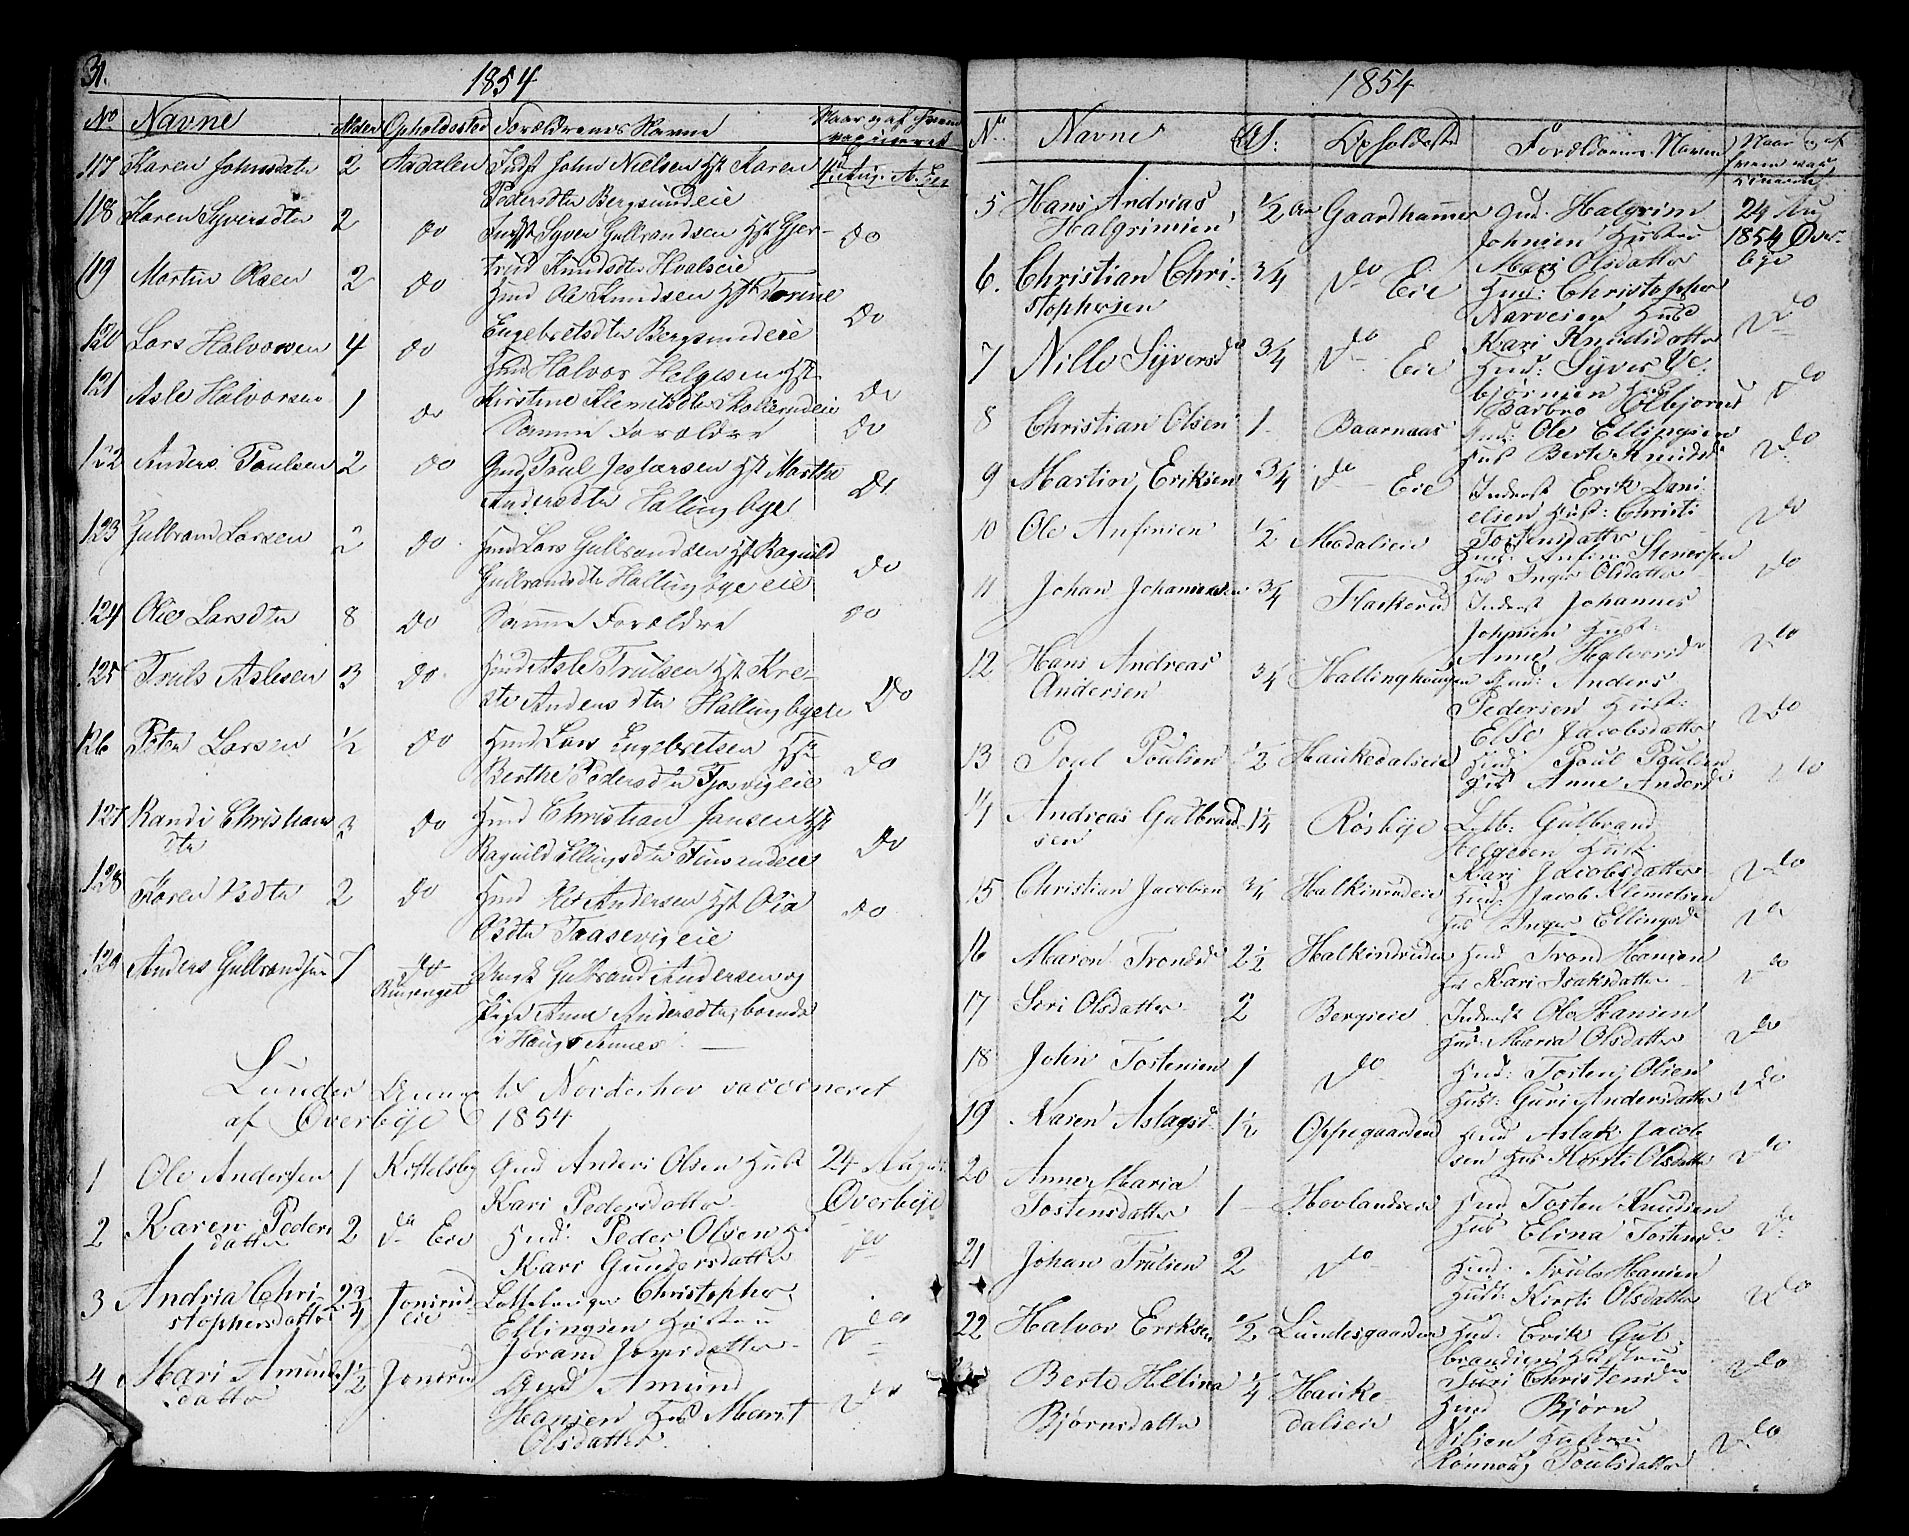 31.
1854
No Navne Alder Opholdssted Forældrenes Navne Naar og af hvem
vaccineret
117 Karen Johnsdatter 2 Aadalen Indst John Nielsen Hst Karen
Pedersdtr Bergsundeie
118 Karen Syversdtr 2 Do Indst Syver Gulbrandsen Hst Gjer-
trud Knudsdtr Hvalseie Do
119 Martin Olsen 2 Do Hmd Ole Knudsen Hst Torine
Engebretsdtr Bergsundeie Do
120 Lars Halvorsen 4 Do Hmd Halvor Helgesen Hst
Kirstine Klemetsdtr Skollerudeie Do
121 Asle Halvorsen 1 Do Samme Forældre Do
122 Anders Paulsen 2 Do Gmd Paul Jespersen Hst Marthe
Andersdtr Hallingbye Do
123 Gulbrand Larsen 2 Do Hmd Lars Gulbrandsen Hst Ragnild
Gulbrandsdtr Hallingbyeeie Do
124 Olie Larsdtr 8 Do Samme Forældre Do
125 Truls Aslesen 3 Do Hmd Asle Trulsen Hst Kre-
ste Andersdtr Hallingbyeie Do
126 Peter Larsen 1/2 Do Hmd Lars Engebretsen Hst
Berthe Pedersdtr Tjosvigeie Do
127 Randi Christians
dtr 3 Do Hmd Christian Jansen Hst
Ragnild Ellingsdtr Do
128 Karen Olsdtr 2 Do Hmd Ole Andersen Hst Olia
Olsdtr Taasevigeie Do
129 Anders Gulbrandsen 7 Do
Ringeriget Ungk Gulbrand Andersen og
Pige Anne Andersdtr, boende
i Haugs Annex. —
Lunder Annex til Norderhov vaccineret
af Överbÿe 1854
1 Ole Andersen 1 Kittelsby Gmd Anders Olsen Hust 24 August
Kari Pedersdatter Överbÿe
2 Karen Peders
datter 2 do Eie Hmd: Peder Olsen H:
Kari Gundersdatter do
3 Andria Chri-
stophersdatter 2 3/4 Jonsrud
eie Christopher
Ellingsen Hustru
Jorand Jonsdatter do
4 Mari Amunds
datter 1 1/2 Jonsrud Gmd Amund
Hansen Hus Marit
Olsdatter do
1854
No Navne Al: Opholdsted Forældrenes Navne Naar og af
hvem vac
cinerede
5 Hans Andreas
Halgrimsen 1/2 Aar Gaardhammer Gmd. Halgrim
Johnsen Hustru
Mari Olsdatter 24 Aug
1854 Över-
bÿe
6. Christian Chri-
stophersen 3/4 do Eie Hmd: Christopher
Narvesen Hust
Kari Knudsdatter do
7 Nille Syversd 3/4 do Eie Hmd: Syver Ve-
bjørnsen Hus
Barbro Elbjørnsd do
8 Christian Olsen 1 Baarnaas Gmd: Ole Ellingsen
Hust Berte Knudsd do
9 Martin Eriksen 3/4 do Eie Inderst Erik Dani
elsen Hust: Christi
Tostensdatter do
10 Ole Anfinsen 1/2 Modalseie Hmd: Anfin Stenersen
Hus Inger Olsdatter do
11 Johan Johannesen 3/4 Flaskerud Inderst Johannes
Johnsen Hust:
Anne Halvorsd do
12 Hans Andreas
Andersen 3/4 Hallinghougen Hmd: Anders
Pedersen Hust:
Else Jacobsdatter do
13 Poul Poulsen 1/2 Haukedalseie Hmd: Poul Poulsen
Hus Anne Andersd do
14 Andreas Gulbrand
sen 1 1/4 Røsbÿe Lttb: Gulbrand
Helgesen Hust
Kari Jacobsdatter do
15 Christian Jacobsen 3/4 Halkinrudeie Hmd: Jacob Klemetsen
Hus Inger Ellingsd do
16 Maren Trondsd 2 1/2 Halkinrudeie Hmd Trond Hansen
Hus Kari Isaksdatter do
17 Siri Olsdatter 2 Bergseie Inderst Ole Hansen
Hus: Maria Olsdatter do
18 John Tostensen 1 do Hmd: Tosten Olsen
Hust: Guri Andersdatter do
19 Karen Aslagsd 1 1/2 Oppegaarden Hmd Aslak Jacob
sen Hus Kersti Olsdatter do
20 Anne Maria
Tostensdatter 1 Hovlandseie Hmd Tosten Knudsen
Hus Elina Tostensd do
21 Johan Trulsen 2 do Hmd: Truls Hansen
Hust: Kirsti Olsdatter do
22 Halvor Eriksen 1/2 Lundesgaarden Hmd: Erik Gul-
brandsen Hustru
Guri Christensd do
23 Berte Helina
Bjørnsdatter 1/4 Hauke
dalseie Hmd Bjørn
Nilsen Hustru
Rønnoug Poulsdatter do